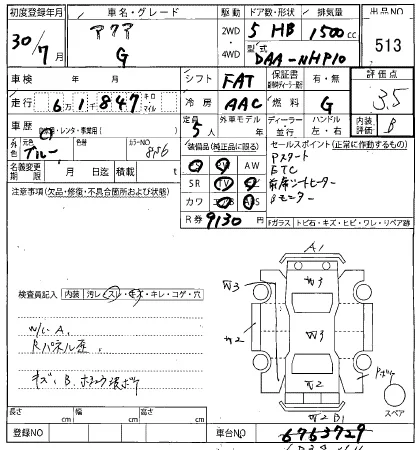 初度登録年月 車名・グレード 駆動 ドア数・形状 排気量 出品NO
30/7月 アクア G 2WD・4WD 5 HB 1500cc 513
型式 DAA-NHP10
車検 年 月 シフト FAT 保証書 有・無 評価点 3.5
走行 6万1千847 キロ マイル 冷房 AAC 燃料 G 内装評価 B
車歴 自家用・レンタ・事業用( ) 定員 5人 外車モデル ディーラー・並行 ハンドル 左・右
外色 元色 ブルー 色替 カラーNO 8W6
装備品(純正品に限る) セールスポイント(正常に作動するもの)
名義変更期限 月 日迄 積載 t
PS PW AW
SR TV
カワ ナビ ABS
R券 9130円
Pスタート
ETC
前席シートヒーター
Bモニター
注意事項(欠品・修復・不具合箇所および状態)
Fガラス トビ石・キズ・ヒビ・ワレ・リペア跡
検査員記入 内装 汚レ・スレ・キズ・キレ・コゲ・穴
W/L A.
Rパネル歪.
キズ、B.
A1
W3
W3
W2
W3
W2
W2 B1
スペア
長さ cm 幅 cm 高さ cm
登録NO 車台NO 6763729